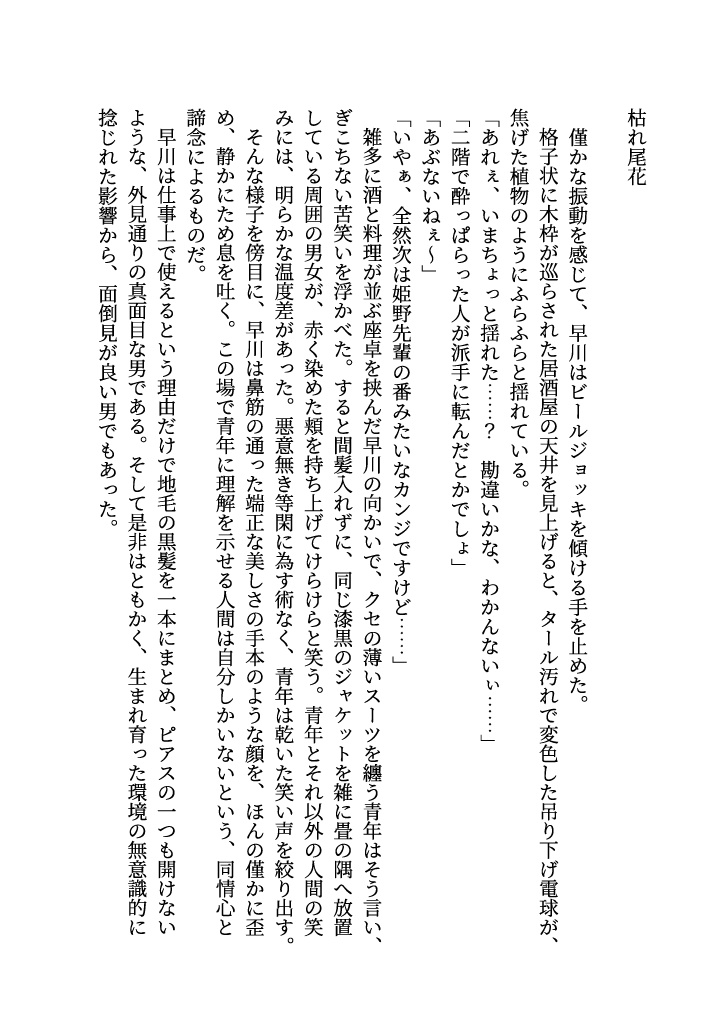 枯れ尾花
　僅かな振動を感じて、早川はビールジョッキを傾ける手を止めた。
　格子状に木枠が巡らされた居酒屋の天井を見上げると、タール汚れで変色した吊り下げ電球が、
焦げた植物のようにふらふらと揺れている。
「あれぇ、いまちょっと揺れた……？　勘違いかな、わかんないぃ……」
「二階で酔っぱらった人が派手に転んだとかでしょ」
「あぶないねぇ～」
「いやぁ、全然次は姫野先輩の番みたいなカンジですけど……」
　雑多に酒と料理が並ぶ座卓を挟んだ早川の向かいで、クセの薄いスーツを纏う青年はそう言い、
ぎこちない苦笑いを浮かべた。すると間髪入れずに、同じ漆黒のジャケットを雑に畳の隅へ放置
している周囲の男女が、赤く染めた頬を持ち上げてけらけらと笑う。青年とそれ以外の人間の笑
みには、明らかな温度差があった。悪意無き等閑に為す術なく、青年は乾いた笑い声を絞り出す。
　そんな様子を傍目に、早川は鼻筋の通った端正な美しさの手本のような顔を、ほんの僅かに歪
め、静かにため息を吐く。この場で青年に理解を示せる人間は自分しかいないという、同情心と
諦念によるものだ。
　早川は仕事上で使えるという理由だけで地毛の黒髪を一本にまとめ、ピアスの一つも開けない
ような、外見通りの真面目な男である。そして是非はともかく、生まれ育った環境の無意識的に
捻じれた影響から、面倒見が良い男でもあった。